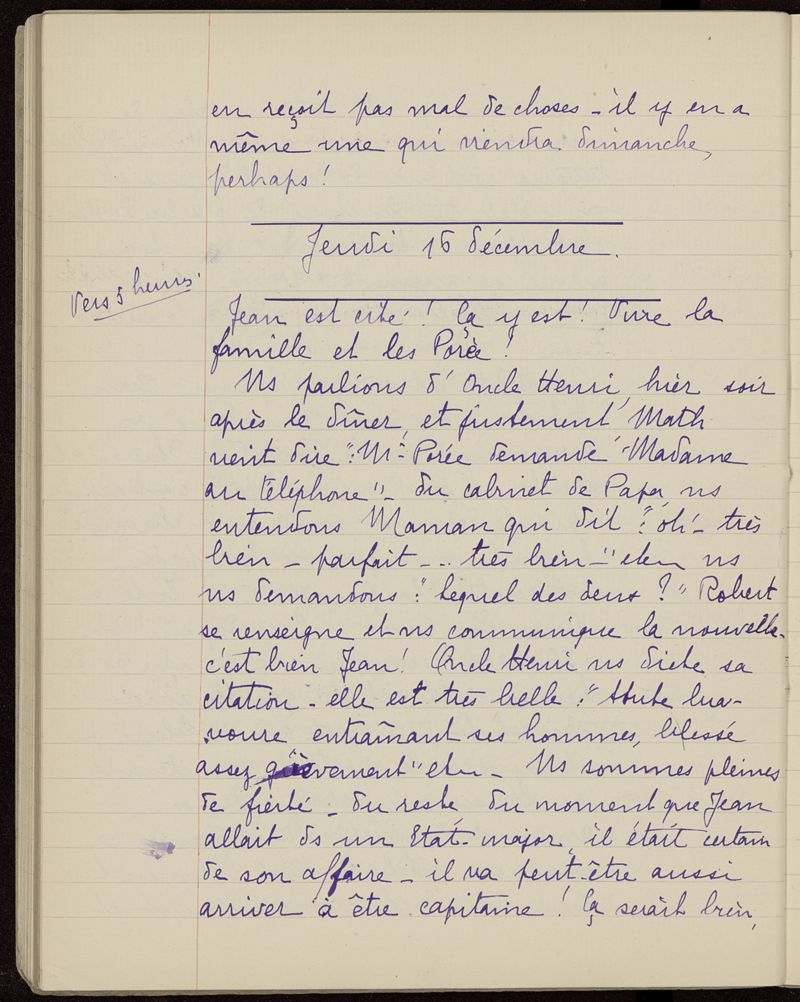 en reçoit pas mal de choses - il y en a
même une qui viendra dimanche,
perhaps !
Jeudi 16 décembre.
Vers 5 heures.
Jean est cité ! Ça y est ! Vive la
famille et les Porée !
Ns parlions d'Oncle Henri, hier soir
après le dîner, et justement Math
vient dire : "Mr Porée demande Madame
au téléphone" - du cabinet de Papa, ns
entendons Maman qui dit : "oh ! - très
bien - parfait - .. très bien -" etc ns
ns demandons : "Lequel des deux ?" Robert
se renseigne et ns communique la nouvelle -
c'est bien Jean ! Oncle Henri ns dicte sa
citation - elle est très belle : " bra-
voure entraînant ses hommes, blessé
assez grièvement" etc - Ns sommes pleines
de fierté - du reste, du moment que Jean
allait ds un Etat-major, il était certain
de son affaire - il va peut-être aussi
arriver à être capitaine ! Ça serait bien,